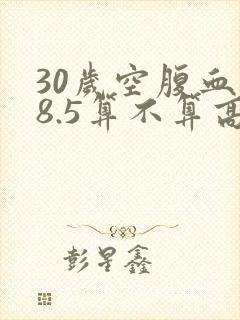 30歲空腹血
8.5算不算高
彭星鑫